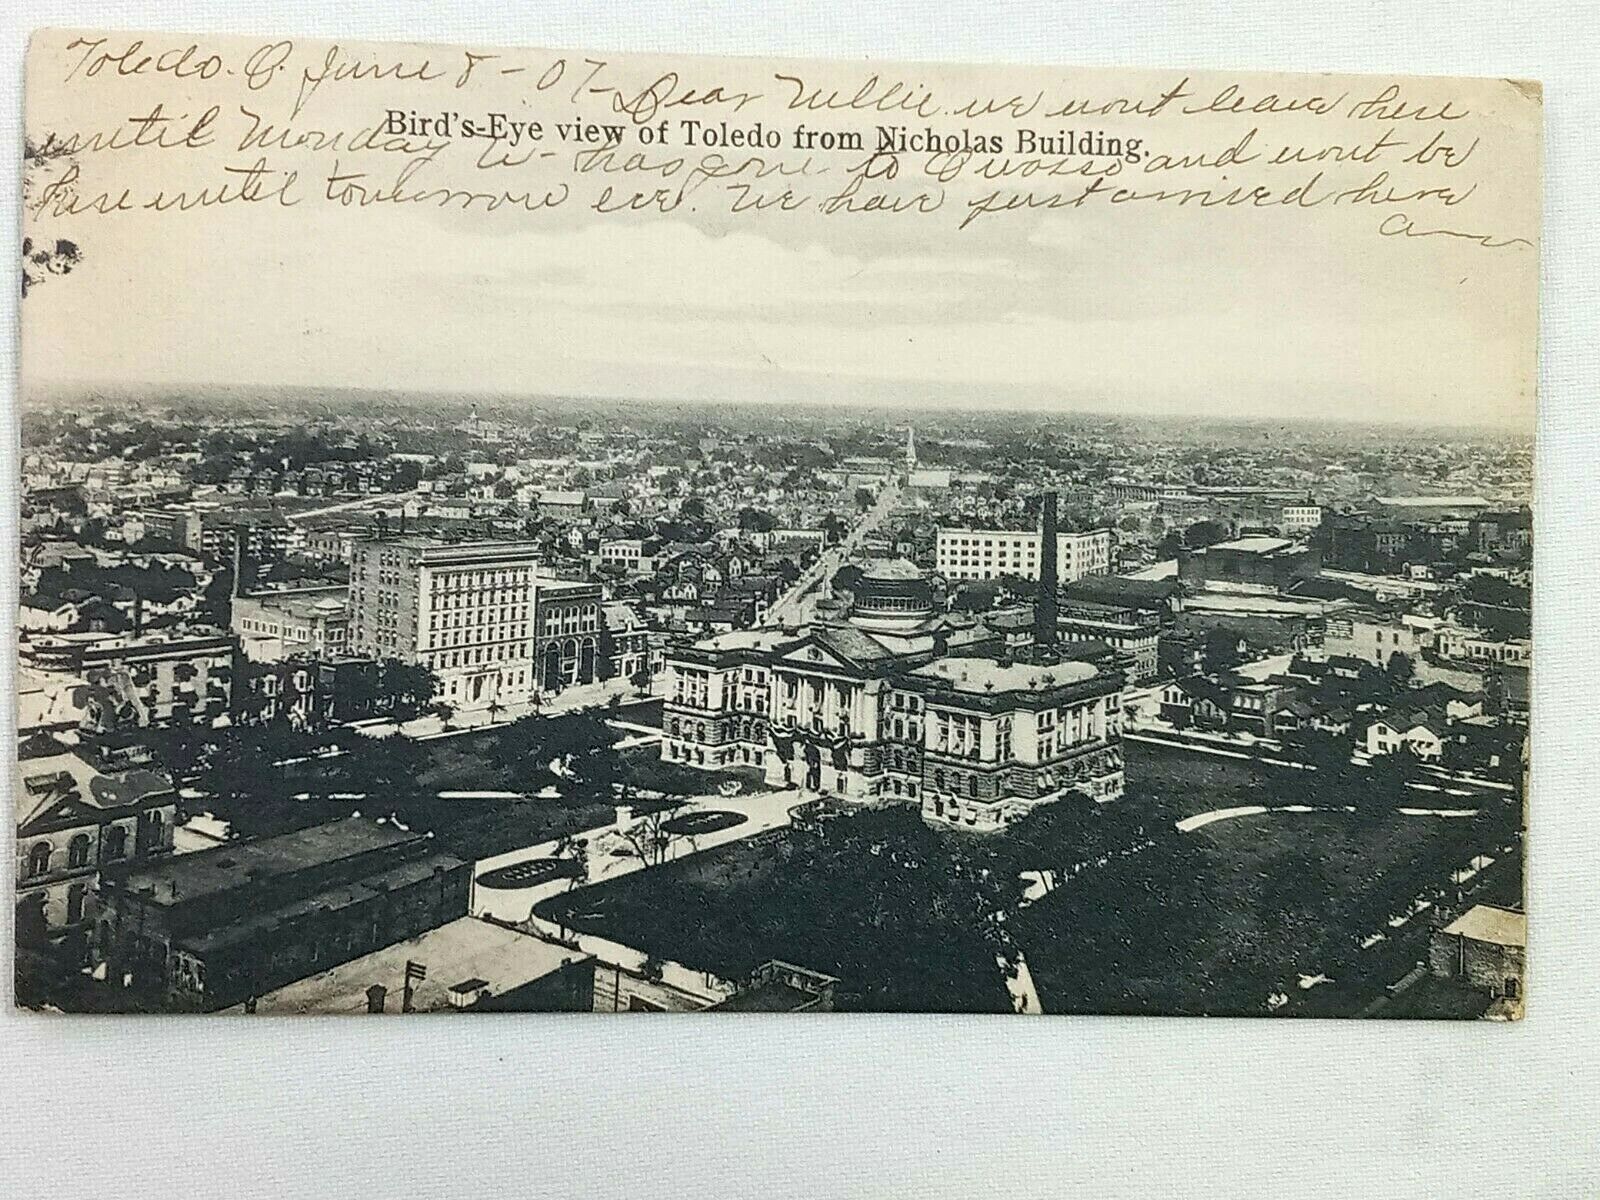 Toledo. O. June 8 - 07 - Dear Nellie we wont leave here
Bird's-Eye view of Toledo from Nicholas Building.
until Monday W- has gone to Owosso and wont be
here until tomorrow eve. We have just arrived here